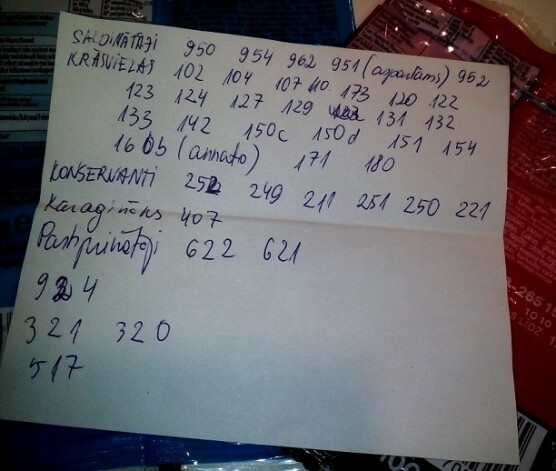 SALDINĀTĀJI 950 954 962 951 (aspartams) 952
KRĀSVIELAS 102 104 107 110 173 120 122
123 124 127 129 131 132
133 142 150c 150d 151 154
160b (annato) 171 180
KONSERVANTI 252 249 211 251 250 221
Karagināns 407
Pastiprinātāji 622 621
924
321 320
517